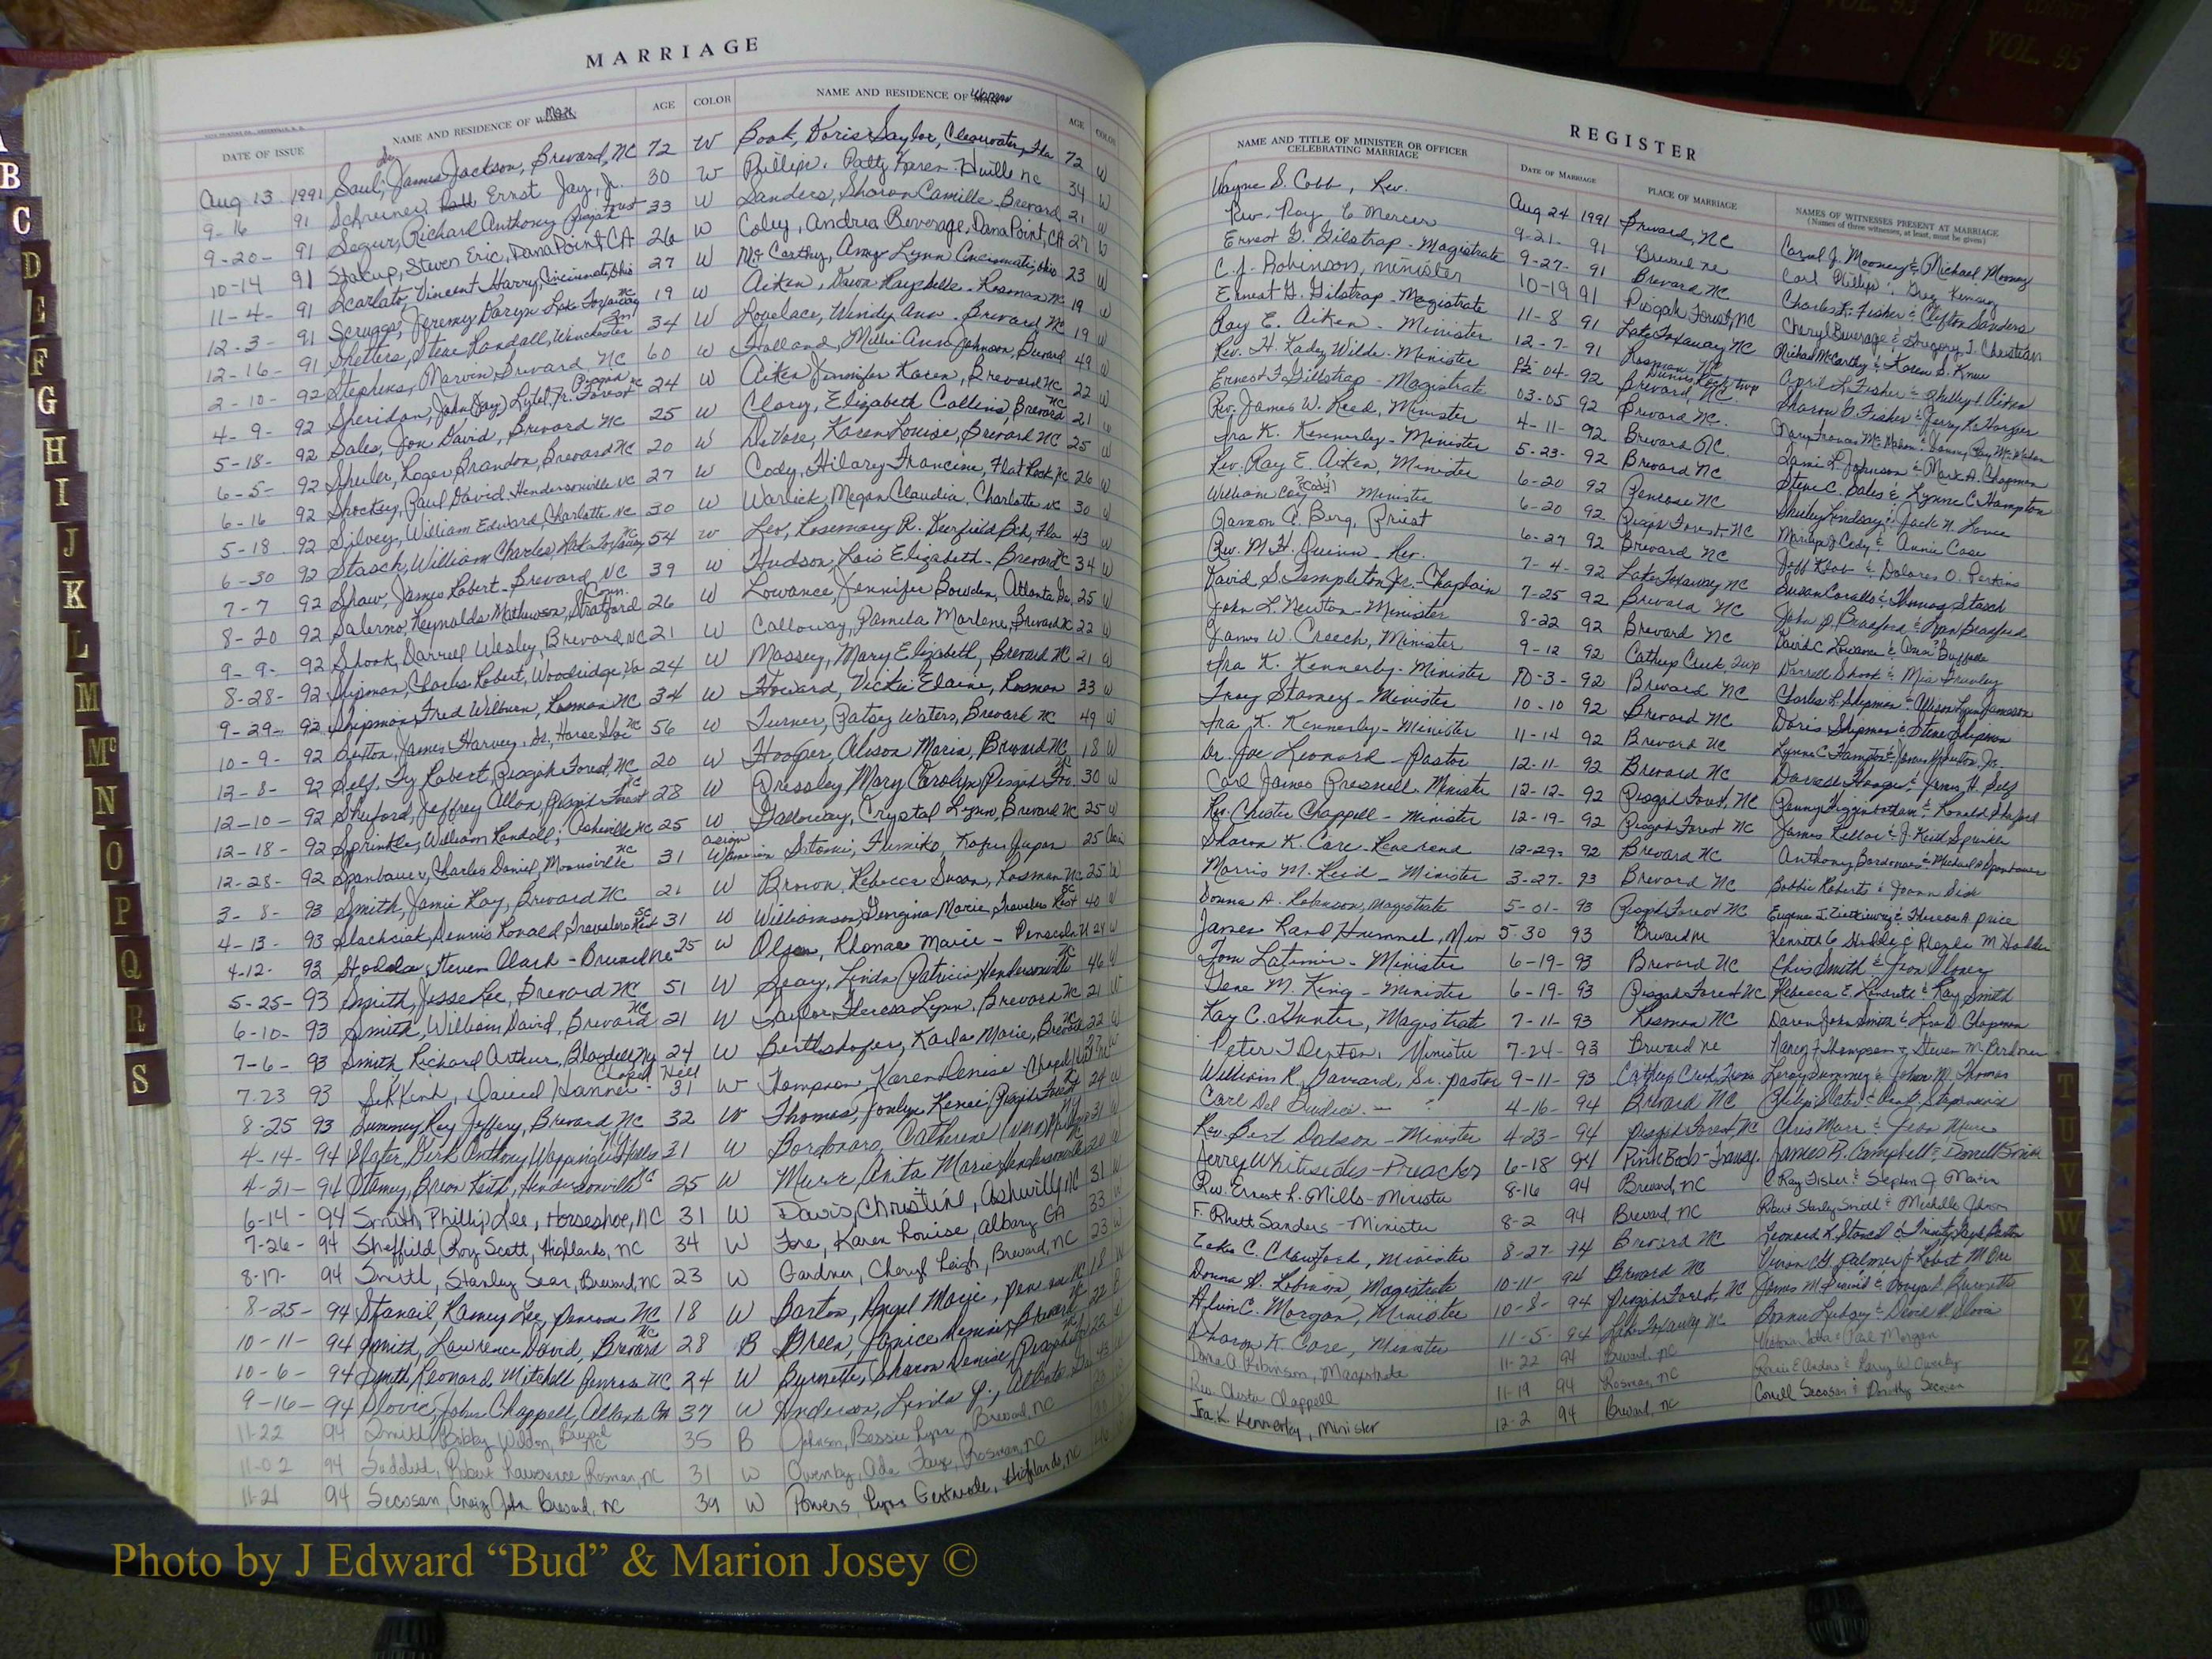 MARRIAGE
DATE OF ISSUE NAME AND RESIDENCE OF Man AGE COLOR NAME AND RESIDENCE OF Woman AGE COLOR
Aug 13 1991 Saul, James Jackson, Brevard, NC 72 W Book, Doris Saylor, Clearwater, Fla 72 W
9-16 91 Schreiner, Ernst Jay, Jr. 30 W Phillips, Patty Karen - H'ville NC 34 W
9-20- 91 Segur, Richard Anthony 33 W Sanders, Sharon Camille - Brevard 21 W
10-14 91 Stalcup, Steven Eric, Dana Point, CA 26 W Coley, Andrea Beverage, Dana Point, CA 27 W
11-4- 91 Scarlato, Vincent Harry, Cincinnati, Ohio 27 W McCarthy, Amy Lynn Cincinnati, Ohio 23 W
12-3- 91 Scruggs, Jeremy Daryn Lake Toxaway NC 19 W Aiken, Dawn Rayshelle - Rosman NC 19 W
12-16- 91 Shetters, Steve Randall, Winchester 34 W Lovelace, Windy Ann - Brevard NC 19 W
2-10- 92 Stephens, Marvin Brevard, NC 60 W Holland, Millie Ann Johnson, Brevard 49 W
4-9- 92 Sheridan, John (Jay) Lytel, Jr. Pisgah Forest NC 24 W Aiken Jennifer Karen, Brevard NC 22 W
5-18- 92 Sales, Jon David, Brevard NC 25 W Clary, Elizabeth Collins, Brevard NC 21 W
6-5- 92 Shuler, Roger Brandon, Brevard NC 20 W DeVore, Karen Louise, Brevard NC 25 W
6-16 92 Shockey, Paul David Hendersonville NC 27 W Cody, Hilary Francine, Flat Rock, NC 26 W
5-18 92 Silvey, William Edward, Charlotte NC 30 W Warlick, Megan Claudia, Charlotte NC 30 W
6-30 92 Stasch, William Charles, Lake Toxaway NC 54 W Lev, Rosemary R. Deerfield Bch, Fla 43 W
7-7 92 Shaw, James Robert - Brevard NC 39 W Hudson, Lois Elizabeth - Brevard NC 34 W
8-20 92 Salerno, Reynolds Mathewson, Stratford Conn. 26 W Lowance, Jennifer Bowden, Atlanta Ga. 25 W
9-9- 92 Shook, Darrell Wesley, Brevard, NC 21 W Calloway, Pamela Marlene, Brevard NC 22 W
8-28- 92 Shipman, Charles Robert, Woodridge, Va 24 W Massey, Mary Elizabeth, Brevard NC 21 W
9-29- 92 Shipman, Fred Wilburn, Rosman NC 34 W Howard, Vickie Elaine, Rosman 33 W
10-9- 92 Sexton, James Harvey, Sr., Horse Shoe NC 56 W Turner, Patsy Waters, Brevard NC 49 W
12-8- 92 Self, Ty Robert, Pisgah Forest, NC 20 W Hooper, Alison Maria, Brevard NC 18 W
12-10- 92 Shuford, Jeffrey Allen, Pisgah Forest NC 28 W Pressley Mary Carolyn Pisgah For. NC 30 W
12-18- 92 Sprinkle, William Randall, Asheville NC 25 W Galloway, Crystal Lynn, Brevard NC 25 W
12-28- 92 Spanbauer, Charles Daniel Mooresville NC 31 Sitomi, Fumiko, Japan 25
3-8- 93 Smith, Jamie Ray, Brevard NC 21 W Brown, Rebecca Susan, Rosman NC 25 W
4-13- 93 Stachciak, Dennis Ronald, Travelers Rest SC 31 W Williamson, Georgina Marie, Travelers Rest SC 40 W
4-12- 93 Steven Clark - Brevard NC 25 W Olsen, Rhonae Marie - Pensacola Fl 24 W
5-25- 93 Smith, Jesse Lee, Brevard NC 51 W Seay, Linda Patricia Hendersonville NC 46 W
6-10- 93 Smith, William David, Brevard NC 21 W Taylor Theresa Lynn, Brevard NC 21 W
7-6- 93 Smith Richard Arthur, Blasdell NY 24 W Karla Marie, Brevard NC 22 W
7-23 93 Daniel Hanner - Chapel Hill 31 W Thompson, Karen Denise - Chapel Hill NC
8-25 93 Summey Ray Jeffery, Brevard NC 32 W Thomas, Joslyn Renee, Pisgah Forest 24 W
4-14- 94 Slater, Dirk Anthony, Wappingers Falls 31 W Bordonaro, Catherine 31 W
4-21- 94 Stamey, Brian Keith, Hendersonville NC 25 W Murr, Anita Marie Hendersonville
6-14- 94 Smith, Phillip Lee, Horseshoe, NC 31 W Davis, Christine, Asheville, NC 31
7-26- 94 Sheffield, Roy Scott, Highlands, NC 34 W Fore, Karen Louise, Albany GA 33
8-17- 94 Smith, Stanley Sean, Brevard, NC 23 W Gardner, Cheryl Leigh, Brevard, NC 23 W
8-25- 94 Stancil, Ramey Lee, Penrose NC 18 W Barton, Angel Marie, Penrose NC 18 W
10-11- 94 Smith, Lawrence David, Brevard NC 28 B Green, Janice Brevard NC 22
10-6- 94 Smith, Leonard Mitchell Penrose NC 24 W Burnette, Sharon Denise, Pisgah 22
9-16- 94 Slovic, John Chappell, Atlanta GA 37 W Anderson, Linda G., Atlanta Ga 43
11-22 94 Smith, Bobby Weldon, Brevard NC 35 B Johnson, Bessie Lynn, Brevard, NC
11-02 94 Robert Lawrence, Rosman, NC 31 W Owenby, Ada Faye, Rosman, NC
11-21 94 Secosan, Craig John Brevard, NC 39 W Powers, Lynn Gertrude, Highlands, NC
REGISTER
NAME AND TITLE OF MINISTER OR OFFICER CELEBRATING MARRIAGE DATE OF MARRIAGE PLACE OF MARRIAGE NAMES OF WITNESSES PRESENT AT MARRIAGE
(Names of three witnesses, at least, must be given)
Wayne S. Cobb, Rev. Aug 24 1991 Brevard, NC Carol J. Mooney & Michael Mooney
Rev. Roy C Mercer 9-21- 91 Brevard NC Carl Phillips & Greg
Ernest G. Gilstrap - Magistrate 9-27- 91 Brevard NC Charles R. Fisher & Clifton Sanders
C. J. Robinson, minister 10-19 91 Pisgah Forest, NC Cheryl Beverage & Gregory T. Christian
Ernest G. Gilstrap - Magistrate 11-8 91 Lake Toxaway NC Michael McCarthy & Karen S. Knue
Ray E. Aiken - Minister 12-7- 91 Rosman NC April L. Fisher & Shelby Aiken
Rev. H. Kadey Wilde - Minister 04- 92 Dunns Rock Twp Brevard, NC Sharon G. Fisher & Jerry R. Harper
Ernest G. Gillstrap - Magistrate 03-05 92 Brevard NC. Mary Frances McMahan & Danny Ray McMahan
Rev. James W. Reed, Minister 4-11- 92 Brevard NC Tami L. Johnson & Mark A. Chapman
Ira K. Kennerly - Minister 5-23- 92 Brevard NC Steve C. Sales & Lynne C. Hampton
Rev. Ray E. Aiken, Minister 6-20 92 Penrose NC Shirley Lindsay & Jack N. Lance
William Coy (Cody) Minister 6-20 92 Pisgah Forest NC Cody & Annie Case
Ramon A. Berg, Priest 6-27 92 Brevard NC Jeff & Dolores O. Perkins
Rev. M. H. Quinn - Rev. 7-4- 92 Lake Toxaway NC Susan Coratto & Thomas Stasch
David S. Templeton Jr. - Chaplain 7-25 92 Brevard NC John P. Bradford & Lynn Bradford
John L. Newton - Minister 8-22 92 Brevard NC David C Lowance & Ann
James W. Creech, Minister 9-12 92 Catheys Creek, Twp Darrell Shook & Mia
Ira K. Kennerly - Minister 10-3- 92 Brevard NC Charles L. Shipman & Allison Lynn Jameson
Troy Stamey - Minister 10-10 92 Brevard NC Doris Shipman & Steve Shipman
Ira K. Kennerly - Minister 11-14 92 Brevard NC Lynne C. Hampton & James H Sexton, Jr.
Dr. Joe Leonard - Pastor 12-11- 92 Brevard NC Hooper & James H. Self
Carl James Pressnell - Minister 12-12- 92 Pisgah Forest, NC Penny Higginbotham & Ronald Shuford
Rev. Chester Chappell - Minister 12-19- 92 Pisgah Forest NC James Kellar & J. Keith Sprinkle
Sharon K. Care - Reverend 12-29- 92 Brevard NC Anthony Bordonaro & Michael Spanbauer
Morris M. Reid - Minister 3-27- 93 Brevard NC Bobbie Roberts & Joann Sisk
Donna A. Robinson, Magistrate 5-01- 93 Pisgah Forest NC Eugene J. & Theresa A. Price
James Rand Hummel, Min 5-30 93 Brevard NC Kenneth C & Rhonda M
Tom Latimer - Minister 6-19- 93 Brevard NC Chris Smith & Jean
Gene M. King - Minister 6-19- 93 Pisgah Forest NC Rebecca E. Landreth & Ray Smith
Kay C. Hunter, Magistrate 7-11- 93 Rosman NC Daren John Smith & Lisa D. Chapman
Peter T Denton, Minister 7-24- 93 Brevard NC Nancy F. Thompson & Steven M.
William R. Garrard, Sr. Pastor 9-11- 93 Catheys Creek Leroy Summey & John M. Thomas
Carl Del Giudice - 4-16- 94 Brevard NC
Rev. Bert Dodson - Minister 4-23- 94 Pisgah Forest, NC Chris Murr & Jean Murr
Jerry Whitesides - Preacher 6-18 94 Pink Beds - Transy. James R. Campbell & Donnell
Rev. Ernest L. Mills - Minister 8-16 94 Brevard, NC C Ray Fisher & Stephen J. Martin
F. Rhett Sanders - Minister 8-2 94 Brevard, NC Robert Stanley Smith & Michelle
C. Crawford, Minister 8-27- 94 Brevard NC Leonard R. Stancil &
Donna A. Robinson, Magistrate 10-11- 94 Brevard NC Palmer & Robert M.
Alvin C. Morgan, Minister 10-8- 94 Pisgah Forest, NC James M. & Burnette
Sharon K. Care, Minister 11-5- 94 Lake Toxaway NC Bonnie Lindsay & David
Donna A. Robinson, Magistrate 11-22 94 Brevard, NC & Paul Morgan
Rev. Chester Chappell 11-19 94 Rosman, NC & Larry W. Owenby
Ira K. Kennerley, Minister 12-2 94 Brevard, NC Secosan & Dorothy Secosan
B
C
D
E
F
G
H
I
J
K
L
M
Mc
N
O
P
Q
R
S
T
U
V
W
X
Y
Z
VOL. 93
VOL. 95
Photo by J Edward “Bud” & Marion Josey ©